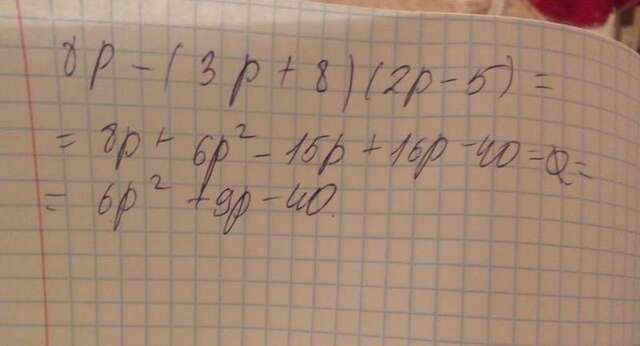 8p - (3p + 8)(2p - 5) =
= 8p + 6p² - 15p + 16p - 40 =
= 6p² + 9p - 40.